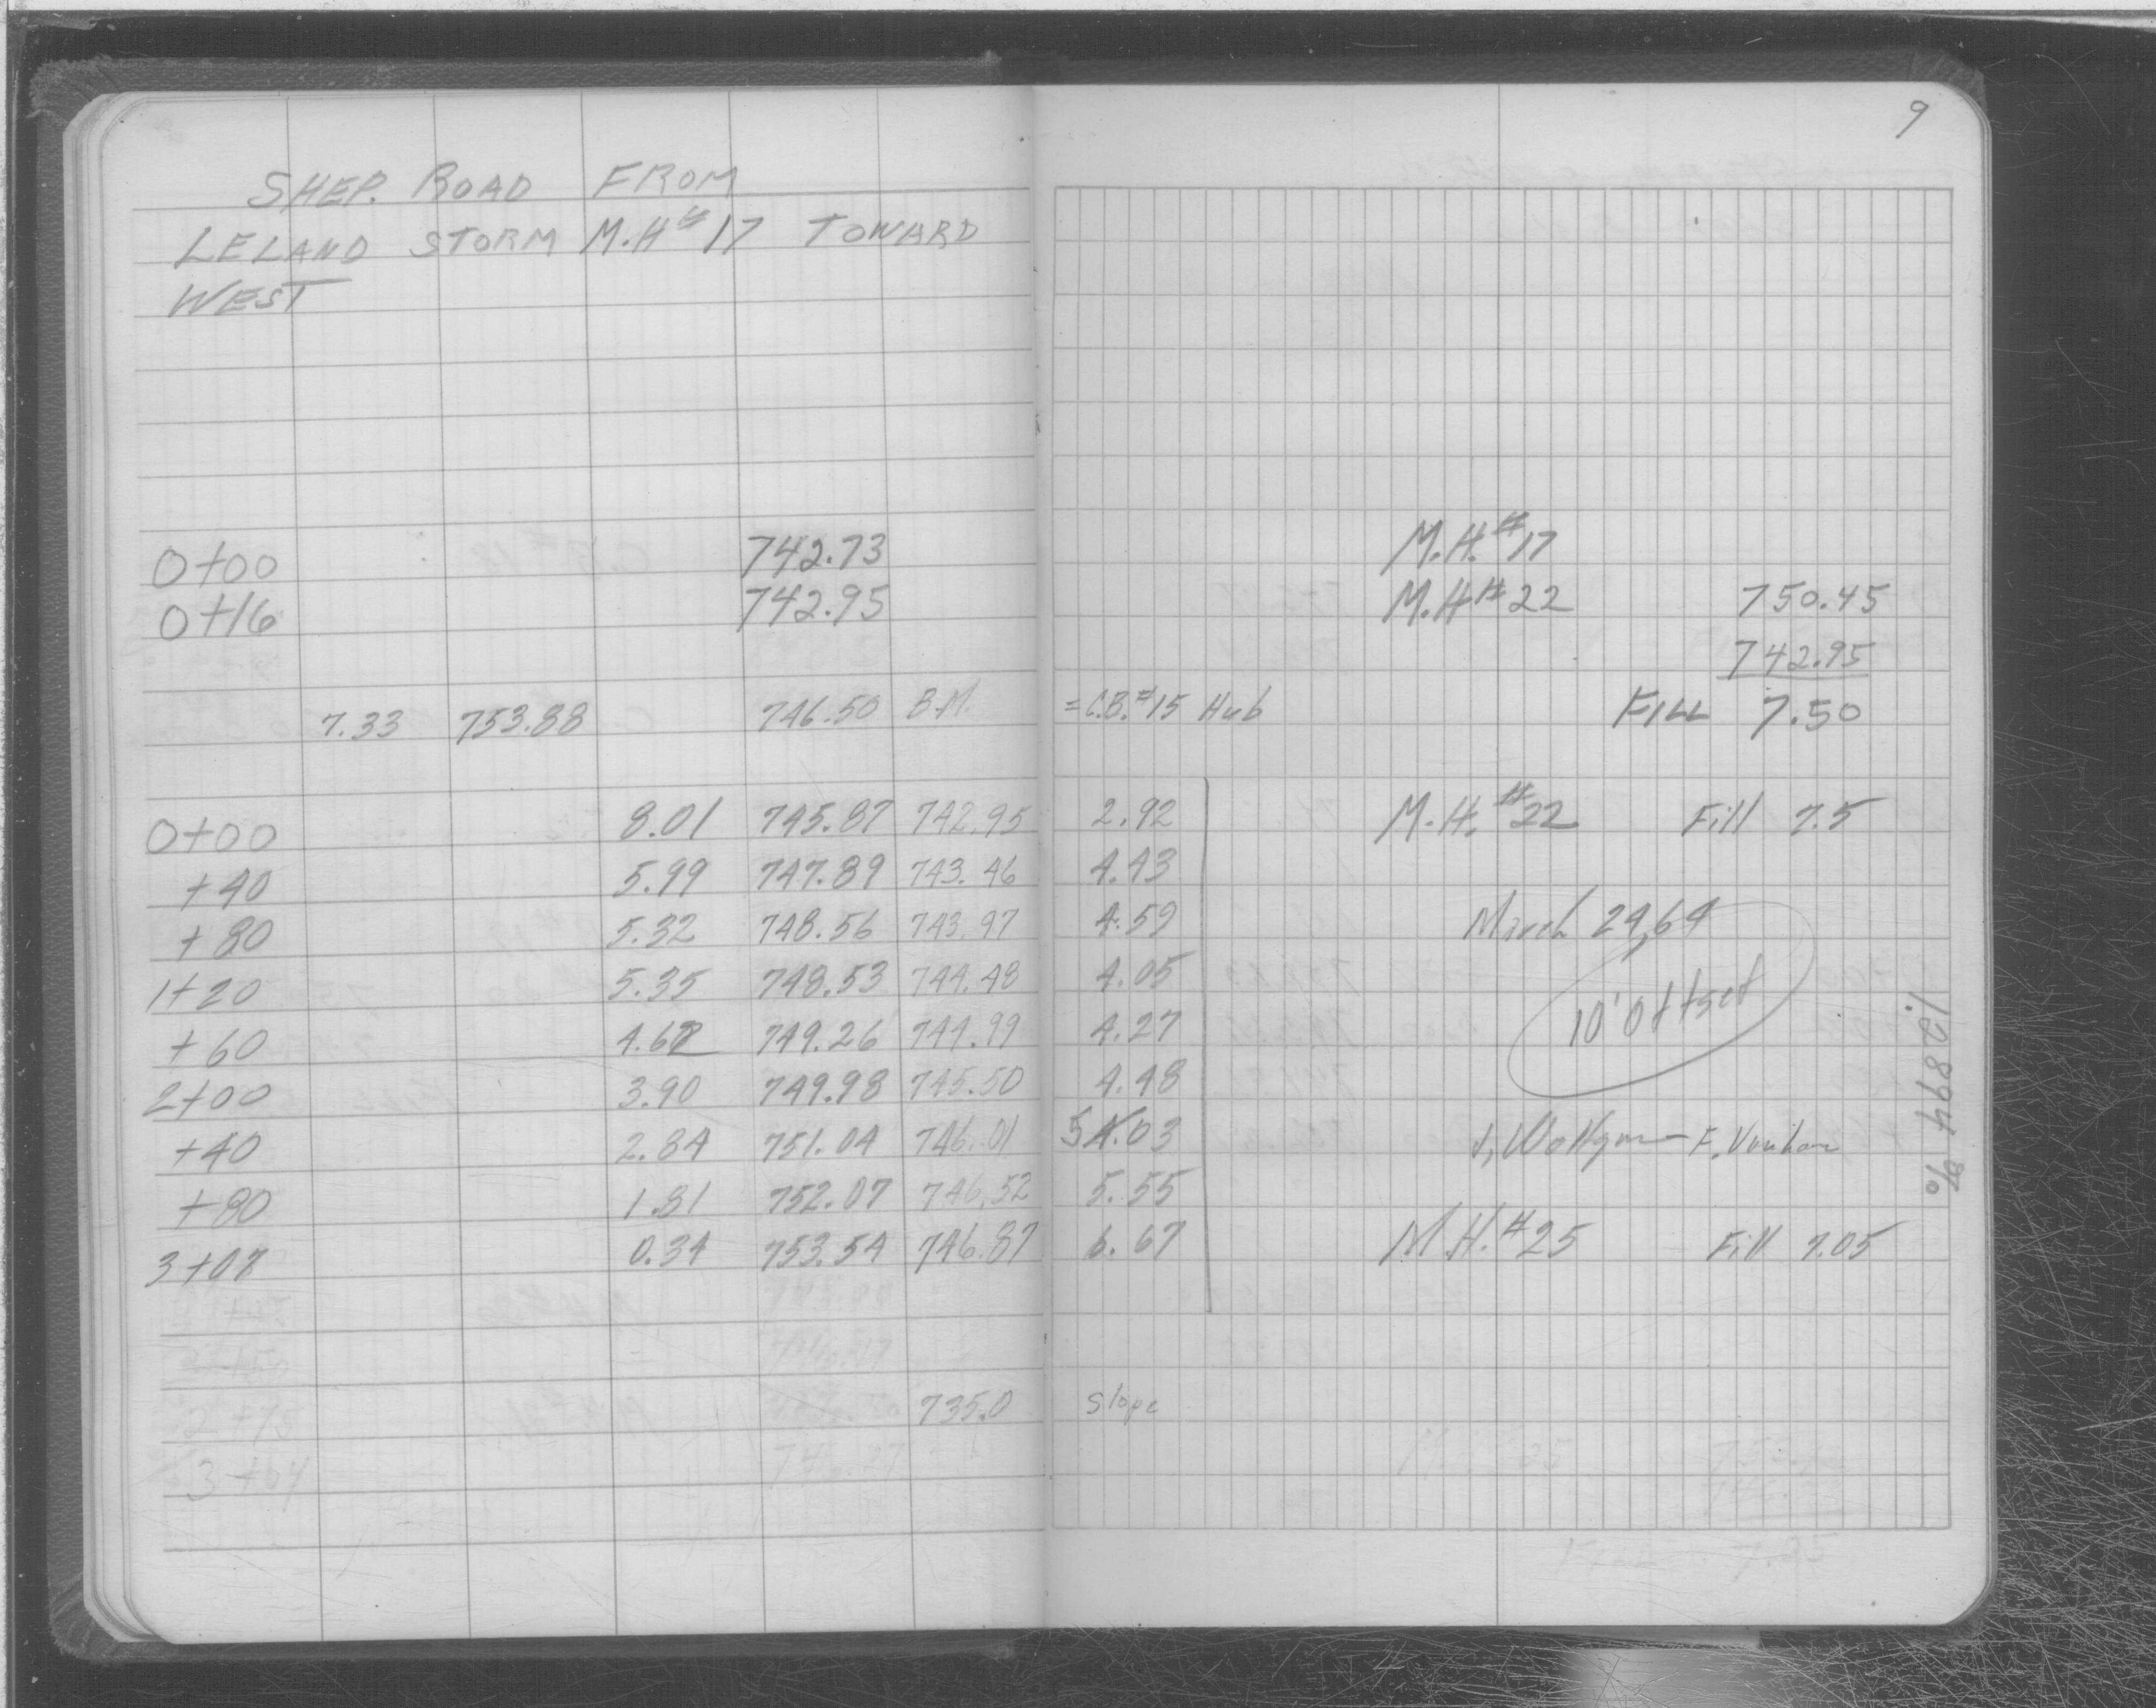 9
SHEP. ROAD FROM
LELAND STORM M.H# 17 TOWARD
WEST
0+00 742.73 M.H.#17
0+16 742.95 M.H# 22 750.45
742.95
7.33 753.88 746.50 B.M. = C.B.#15 Hub FILL 7.50
0+00 8.01 745.87 742.95 2.92 M.H.#22 Fill 7.5
+40 5.99 747.89 743.46 4.43
+80 5.32 748.56 743.97 4.59 March 24,64
1+20 5.35 748.53 744.48 4.05 10' Offset
+60 4.62 749.26 744.99 4.27
2+00 3.90 749.98 745.50 4.48
+40 2.84 751.04 746.01 5.03
+80 1.81 752.07 746.52 5.55
3+07 0.34 753.54 746.87 6.67 M.H.#25 Fill 7.05
735.0 Slope
1.2894 %